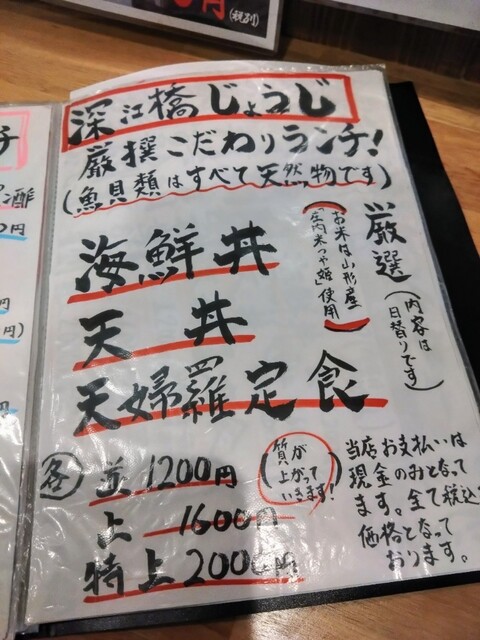 円(税込)
深江橋じょうじ
厳撰こだわりランチ!
(魚貝類はすべて天然物です)
厳選
(内容は
日替りです)
(お米は山形産
庄内米つや姫使用)
海鮮丼
天丼
天婦羅定食
各
並1200円
上1600円
特上2000円
(質が
上がって
いきます!)
当店お支払いは
現金のみとなって
ます。全て税込
価格となって
おります。
チ
酒
0円
円
円)